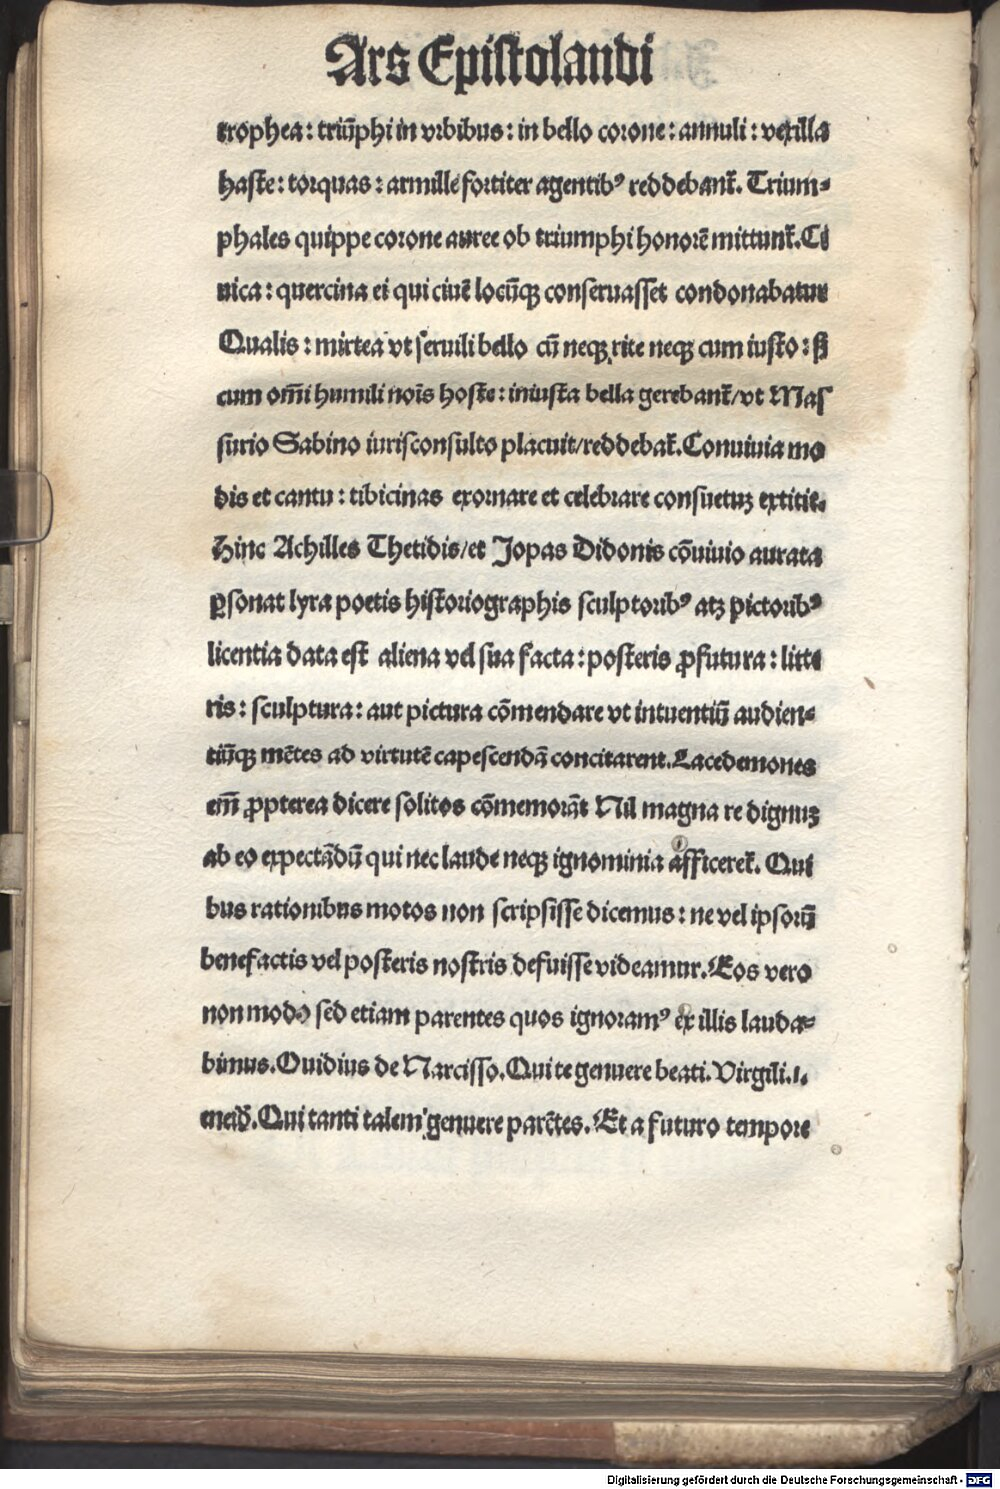 Ars Epistolandi
trophea: triūphi in vrbibus: in bello corone: annuli: vexilla
haste: torquas: armille fortiter agentibꝰ reddebant̄. Trium⸗
phales quippe corone auree ob triumphi honorē mittunt̄. Ci
uica: quercina ei qui ciuē locūqꝫ conseruasset condonabatur
Qualis: mirtea vt seruili bello cū neqꝫ rite neqꝫ cum iusto: sꝫ
cum om̄i humili noīs hoste: iniusta bella gerebant̄/vt Mas
surio Sabino iurisconsulto placuit/reddebat̄. Conuiuia mo
dis et cantu: tibicinas exornare et celebrare consuetuꝫ extitit.
Hinc Achilles Thetidis/et Jopas Didonis cōuiuio aurata
ꝑsonat lyra poetis historiographis sculptoribꝰ atqꝫ pictoribꝰ
licentia data est aliena vel sua facta: posteris ꝓfutura: litte
ris: sculptura: aut pictura cōmendare vt intuentiū audien⸗
tiūqꝫ mētes ad virtutē capescendā concitarent. Lacedemones
em̄ ꝓpterea dicere solitos cōmemorāt Nil magna re dignuꝫ
ab eo expectādū qui nec laude neqꝫ ignominia afficeret̄. Qui
bus rationibus motos non scripsisse dicemus: ne vel ipsorū
benefactis vel posteris nostris defuisse videamur. Eos vero
non modo sed etiam parentes quos ignoramꝰ ex illis lauda⸗
bimus. Ouidius de Narcisso. Qui te genuere beati. Virgili. 1.
eneid̄. Qui tanti talem genuere parētes. Et a futuro tempore
Digitalisierung gefördert durch die Deutsche Forschungsgemeinschaft - DFG